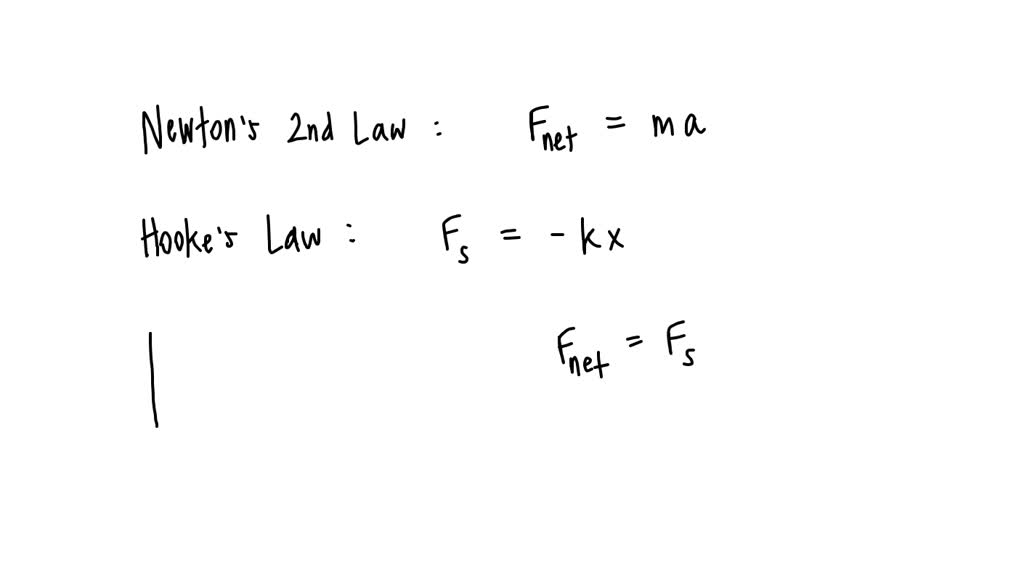 Newton's 2nd Law : F_net = ma
Hooke's Law : F_s = -kx
F_net = F_s